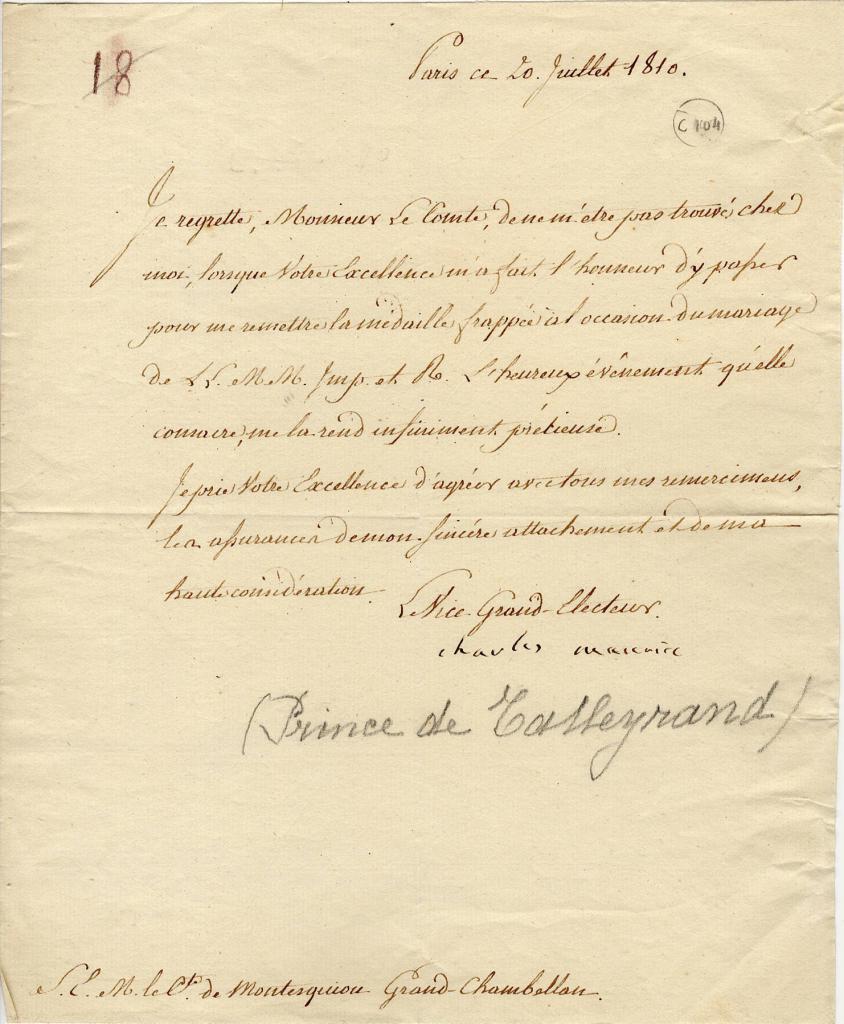 18
Paris ce 20. Juillet 1810.
C 104
Je regrette, Monsieur Le Comte, de ne m'être pas trouvé chez
moi, lorsque Votre Excellence m'a fait l'honneur d'y passer
pour me remettre la médaille frappée à l'occasion du mariage
de L L. M M. Imp. et R. L'heureux événement qu'elle
consacre, me la rend infiniment précieuse.
Je prie Votre Excellence d'agréer avec tous mes remercimens,
les assurances de mon sincère attachement et de ma
haute considération.
Le Vice-Grand-Electeur.
charles maurice
(Prince de Talleyrand)
S. E. M. le Cte. de Montesquiou Grand-Chambellan.